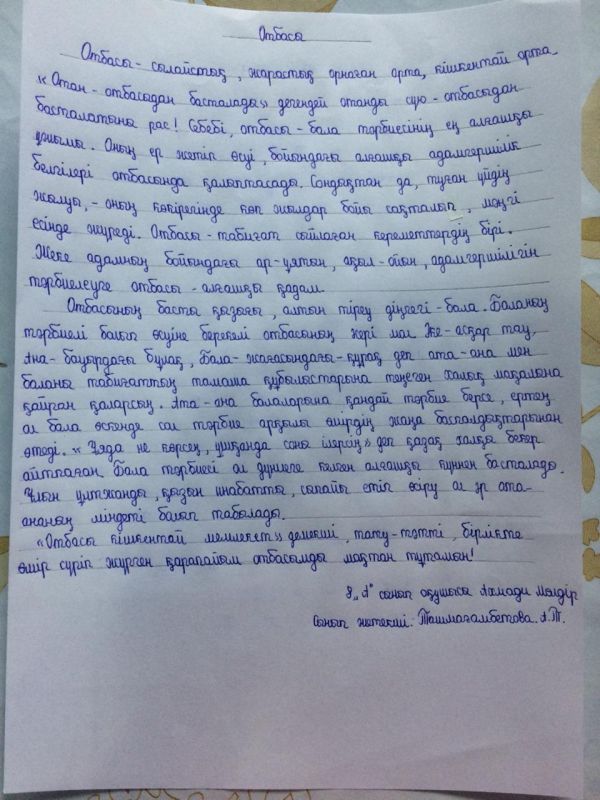 Отбасы
Отбасы - сыйластық, жарастық орнаған орта, кішкентай орта.
«Отан - отбасыдан басталады» дегендей отанды сүю - отбасыдан
басталатыны рас! Себебі, отбасы - бала тәрбиесінің ең алғашқы
ұйымы. Оның ер жетіп өсуі, бойындағы алғашқы адамгершілік
белгілері отбасында қалыптасады. Сондықтан да, туған үйдің
жылуы, - оның көкірегінде көп жылдар бойы сақталып, мәңгі
есінде жүреді. Отбасы - табиғат сыйлаған кереметтердің бірі.
Жеке адамның бойындағы ар-ұятын, ақыл-ойын, адамгершілігін
тәрбиелеуге отбасы - алғашқы қадам.
Отбасының басты қызығы, алтын тіреу діңгегі - бала. Баланың
тәрбиелі болып өсуіне берекелі отбасының жері мол. Әке - асқар тау,
Ана - бауырдағы бұлақ, Бала - жағасындағы - құрақ деп ата-ана мен
баланы табиғаттың тамаша құбылыстарына теңеген халық мақалына
қайран қаларсың. Ата-ана балаларына қандай тәрбие берсе, ертең
ол бала өскенде сол тәрбие арқылы өмірдің жаңа баспалдақтарынан
өтеді. «Ұяда не көрсең, ұшқанда соны ілерсің» деп қазақ халқы бекер
айтпаған. Бала тәрбиесі ол дүниеге келген алғашқы күннен басталады.
Ұлын ұлтжанды, қызын инабатты, сыпайы етіп өсіру ол әр ата-
ананың міндеті болып табылады.
«Отбасы кішкентай мемлекет» демекші, тату-тәтті, бірлікте
өмір сүріп жүрген қарапайым отбасымды мақтан тұтамын!
8 „А" сынып оқушысы Ахмади Мөлдір
Сынып жетекші: Ташмағамбетова. А.Т.